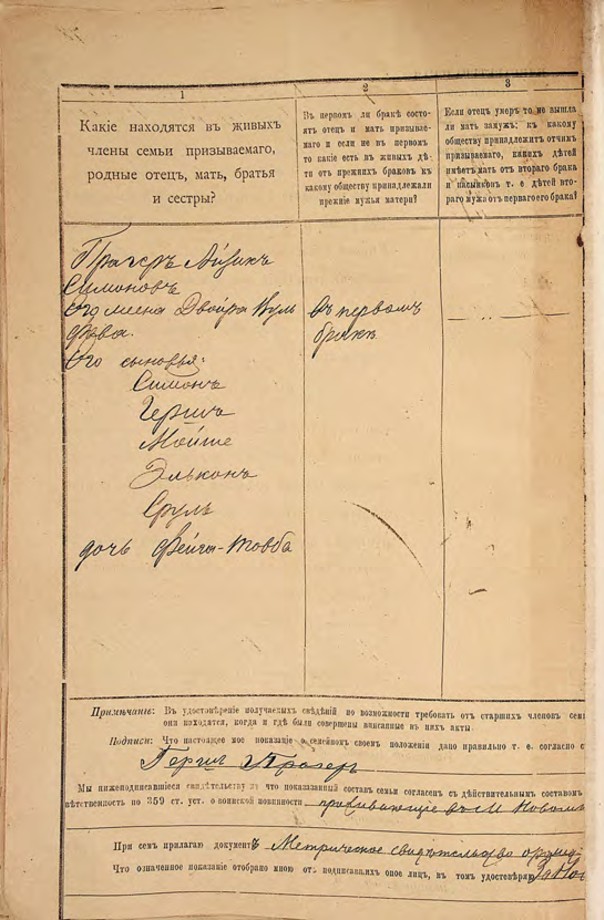 1
2
3
Какіе находятся въ живыхъ
члены семьи призываемаго,
родные отецъ, мать, братья
и сестры?
Въ первомъ ли бракѣ состо-
ятъ отецъ и мать призывае-
маго и если не въ первомъ
то какіе есть въ живыхъ дѣ-
ти отъ прежнихъ браковъ къ
какому обществу принадлежали
прежніе мужья матери?
Если отецъ умеръ то не вышла
ли мать замужъ: къ какому
обществу принадлежитъ отчимъ
призываемаго, какихъ дѣтей
имѣетъ мать отъ втораго брака
и пасынковъ т. е. дѣтей вто-
раго мужа отъ перваго его брака?
Прагеръ Айзикъ
Симоновъ
его жена Двойра Вуль
фова.
Его сыновья:
Симонъ
Гершъ
Мойше
Эльконъ
Сруль
дочь Фейга-Товба
въ первомъ
бракѣ
Примѣчаніе: Въ удостовѣреніе получаемыхъ свѣдѣній по возможности требовать отъ старшихъ членовъ сем
они находятся, когда и гдѣ были совершены вписанные въ нихъ акты.
Подписи: Что настоящее мое показаніе о семейномъ своемъ положеніи дано правильно т. е. согласно с
Гершъ Прагеръ
Мы нижеподписавшіеся свидѣтельствуемъ что показанный составъ семьи согласенъ съ дѣйствительнымъ составомъ
вѣтственность по 359 ст. уст. о воинской повинности проживающіе въ М
При семъ прилагаю документъ Метрическое свидѣтельство о
Что означенное показаніе отобрано мною отъ подписавшихъ оное лицъ, въ томъ удостовѣряю